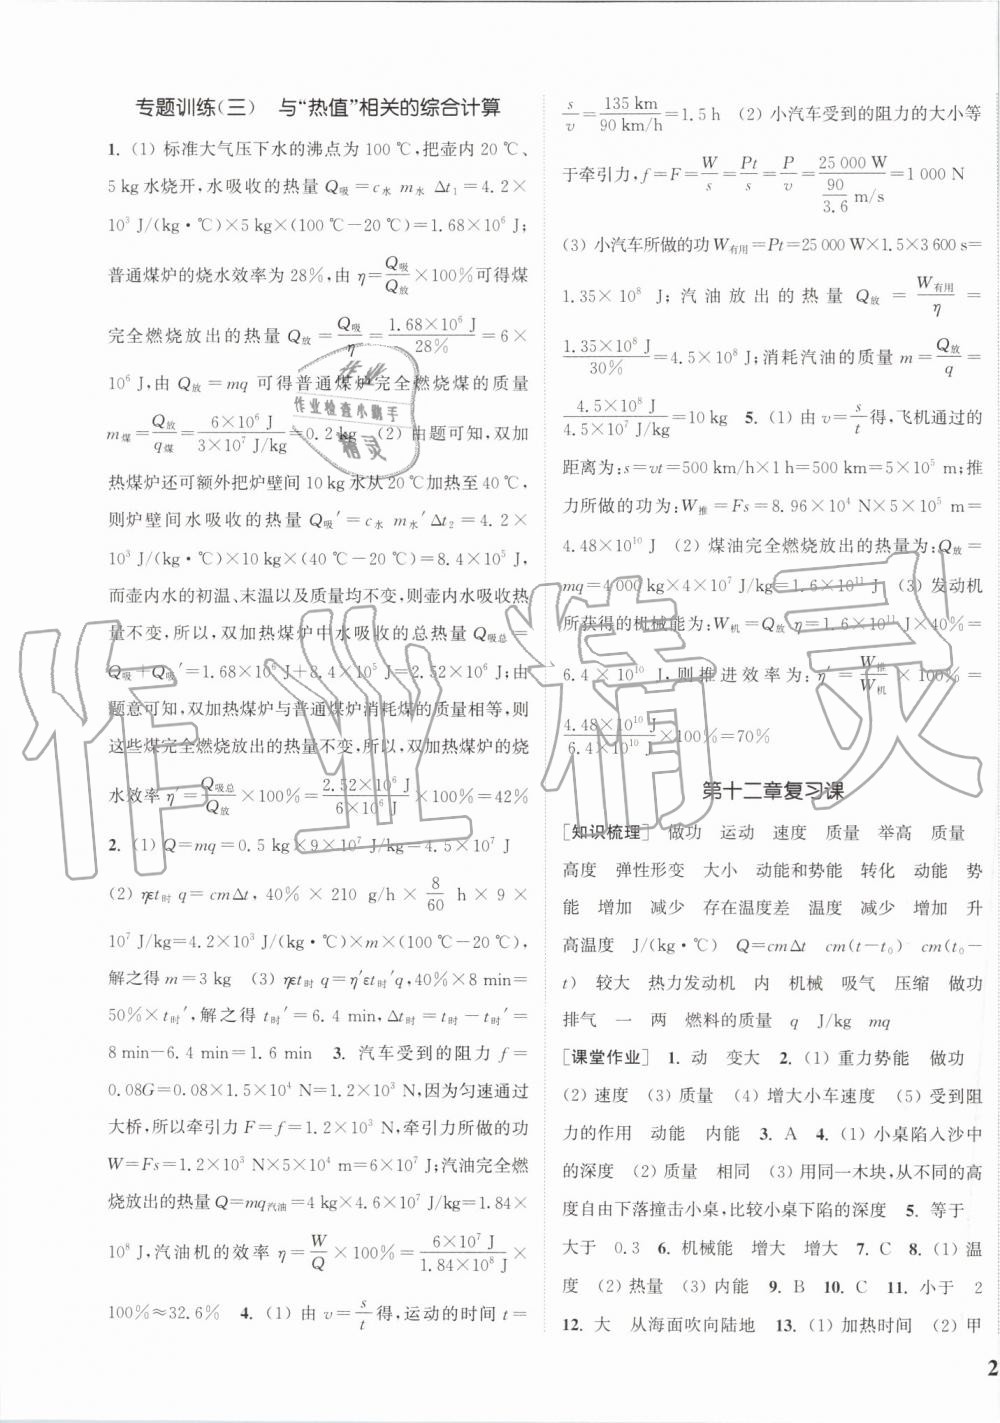 专题训练(三)　与“热值”相关的综合计算
1. (1) 标准大气压下水的沸点为 100 ℃,把壶内 20 ℃、
5 kg 水烧开,水吸收的热量 Q吸=c水 m水 Δt₁=4.2×
10³ J/(kg·℃)×5 kg×(100 ℃-20 ℃)=1.68×10⁶ J;
普通煤炉的烧水效率为 28%,由 η=Q吸/Q放×100%可得煤
完全燃烧放出的热量 Q放=Q吸/η=1.68×10⁶ J/28%=6×
10⁶ J,由 Q放=mq 可得普通煤炉完全燃烧煤的质量
m煤=Q放/q煤=6×10⁶ J/3×10⁷ J/kg=0.2 kg (2) 由题可知,双加
热煤炉还可额外把炉壁间 10 kg 水从 20 ℃加热至 40 ℃,
则炉壁间水吸收的热量 Q吸′=c水 m水′Δt₂=4.2×
10³ J/(kg·℃)×10 kg×(40 ℃-20 ℃)=8.4×10⁵ J,
而壶内水的初温、末温以及质量均不变,则壶内水吸收热
量不变,所以,双加热煤炉中水吸收的总热量 Q吸总=
Q吸+Q吸′=1.68×10⁶ J+8.4×10⁵ J=2.52×10⁶ J;由
题意可知,双加热煤炉与普通煤炉消耗煤的质量相等,则
这些煤完全燃烧放出的热量不变,所以,双加热煤炉的烧
水效率 η′=Q吸总/Q放×100%=2.52×10⁶ J/6×10⁶ J×100%=42%
2. (1) Q=mq=0.5 kg×9×10⁷ J/kg=4.5×10⁷ J
(2) ηεt时 q=cmΔt,40%×210 g/h×8/60 h×9×
10⁷ J/kg=4.2×10³ J/(kg·℃)×m×(100 ℃-20 ℃),
解之得 m=3 kg (3) ηεt时 q=η′εt时′q,40%×8 min=
50%×t时′,解之得 t时′=6.4 min,Δt时=t时-t时′=
8 min-6.4 min=1.6 min 3. 汽车受到的阻力 f=
0.08G=0.08×1.5×10⁴ N=1.2×10³ N,因为匀速通过
大桥,所以牵引力 F=f=1.2×10³ N,牵引力所做的功
W=Fs=1.2×10³ N×5×10⁴ m=6×10⁷ J;汽油完全燃
烧放出的热量 Q=mq汽油=4 kg×4.6×10⁷ J/kg=1.84×
10⁸ J,汽油机的效率 η=W/Q×100%=6×10⁷ J/1.84×10⁸ J×
100%≈32.6% 4. (1) 由 v=s/t得,运动的时间 t=
s/v=135 km/90 km/h=1.5 h (2) 小汽车受到的阻力的大小等
于牵引力,f=F=W/s=Pt/s=P/v=25 000 W/(90/3.6 m/s)=1 000 N
(3) 小汽车所做的功 W有用=Pt=25 000 W×1.5×3 600 s=
1.35×10⁸ J;汽油放出的热量 Q放=W有用/η=
1.35×10⁸ J/30%=4.5×10⁸ J;消耗汽油的质量 m=Q放/q=
4.5×10⁸ J/4.5×10⁷ J/kg=10 kg 5. (1) 由 v=s/t得,飞机通过的
距离为:s=vt=500 km/h×1 h=500 km=5×10⁵ m;推
力所做的功为:W推=Fs=8.96×10⁴ N×5×10⁵ m=
4.48×10¹⁰ J (2) 煤油完全燃烧放出的热量为:Q放=
mq=4 000 kg×4×10⁷ J/kg=1.6×10¹¹ J (3) 发动机
所获得的机械能为:W机=Q放η=1.6×10¹¹ J×40%=
6.4×10¹⁰ J,则推进效率为:η′=W推/W机×100%=
4.48×10¹⁰ J/6.4×10¹⁰ J×100%=70%
第十二章复习课
[知识梳理] 做功 运动 速度 质量 举高 质量
高度 弹性形变 大小 动能和势能 转化 动能 势
能 增加 减少 存在温度差 温度 减少 增加 升
高温度 J/(kg·℃) Q=cmΔt cm(t-t₀) cm(t₀-
t) 较大 热力发动机 内 机械 吸气 压缩 做功
排气 一 两 燃料的质量 q J/kg mq
[课堂作业] 1. 动 变大 2. (1) 重力势能 做功
(2) 速度 (3) 质量 (4) 增大小车速度 (5) 受到阻
力的作用 动能 内能 3. A 4. (1) 小桌陷入沙中
的深度 (2) 质量 相同 (3) 用同一木块,从不同的高
度自由下落撞击小桌,比较小桌下陷的深度 5. 等于
大于 0.3 6. 机械能 增大 增大 7. C 8. (1) 温
度 (2) 热量 (3) 内能 9. B 10. C 11. 小于 2
12. 大 从海面吹向陆地 13. (1) 加热时间 (2) 甲
2
作业
作业检查小帮手
精灵
作业精灵